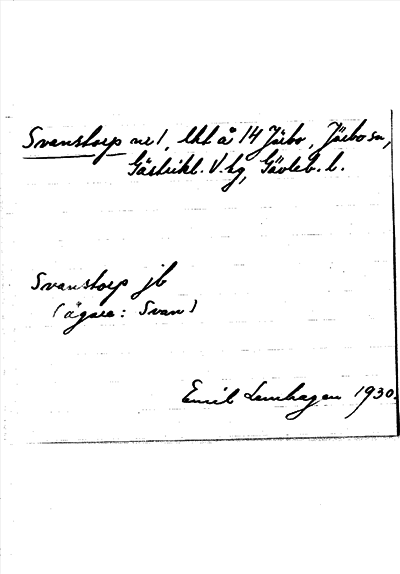 Svanstorp nr 1, lht å 14 Järbo, Järbo sn,
Gästrikl. V. hg, Gävleb. l.
Svanstorp jb
(ägare: Svan)
Emil Lemhagen 1930.